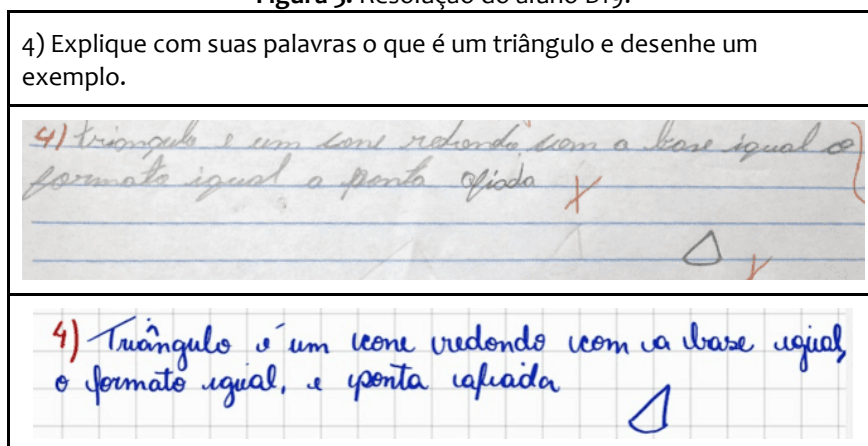 Figura 5. Resolução do aluno B19.
4) Explique com suas palavras o que é um triângulo e desenhe um
exemplo.
4) triangulo e um cone redondo com a base igual o
formato igual a ponta afiada
4) Triângulo é um cone redondo com a base igual,
o formato igual, e ponta afiada